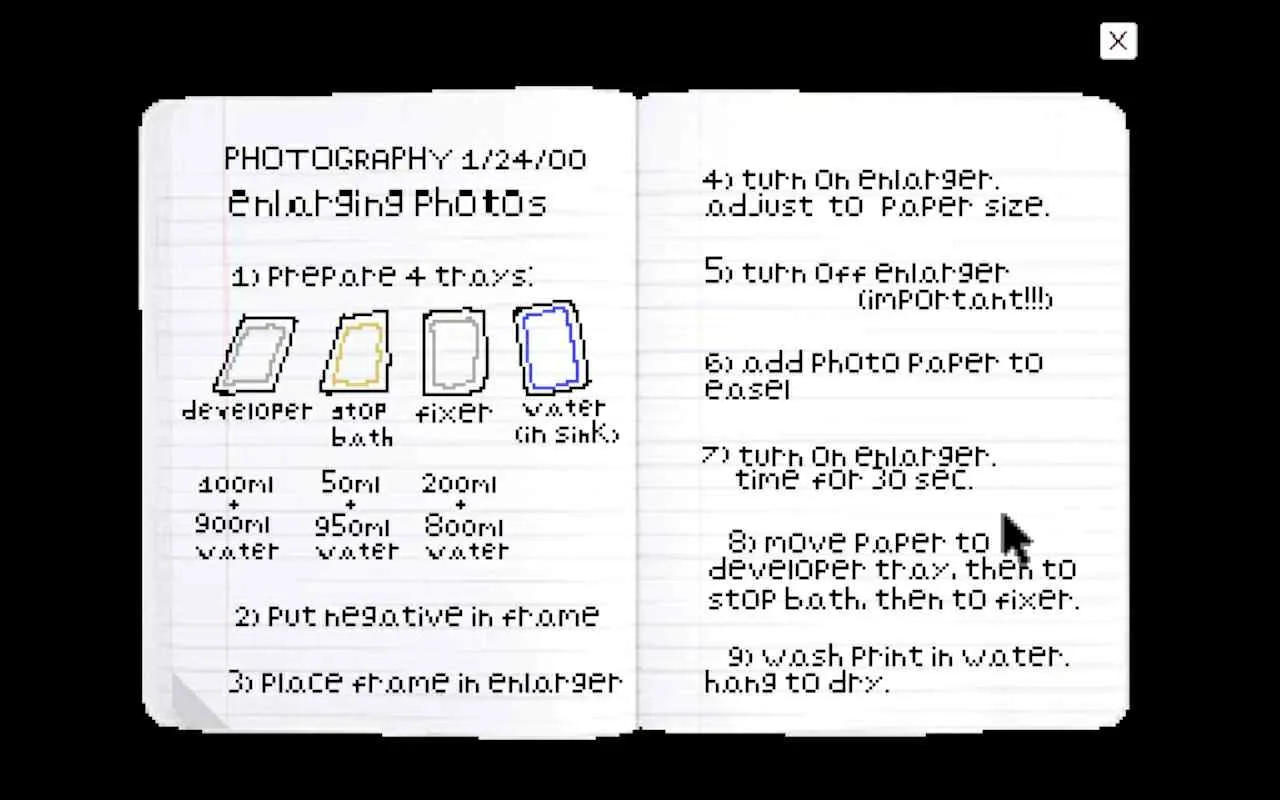 PHOTOGRAPHY 1/24/00
enlarging Photos
1) Prepare 4 trays:
developer stop fixer water
bath (in sink)
100ml 50ml 200ml
+ + +
900ml 950ml 800ml
water water water
2) Put negative in frame
3) Place frame in enlarger
4) turn on enlarger.
adjust to paper size.
5) turn off enlarger
(important!!!)
6) add photo paper to
easel
7) turn on enlarger.
time for 30 sec.
8) move paper to
developer tray, then to
stop bath, then to fixer.
9) wash print in water.
hang to dry.
X